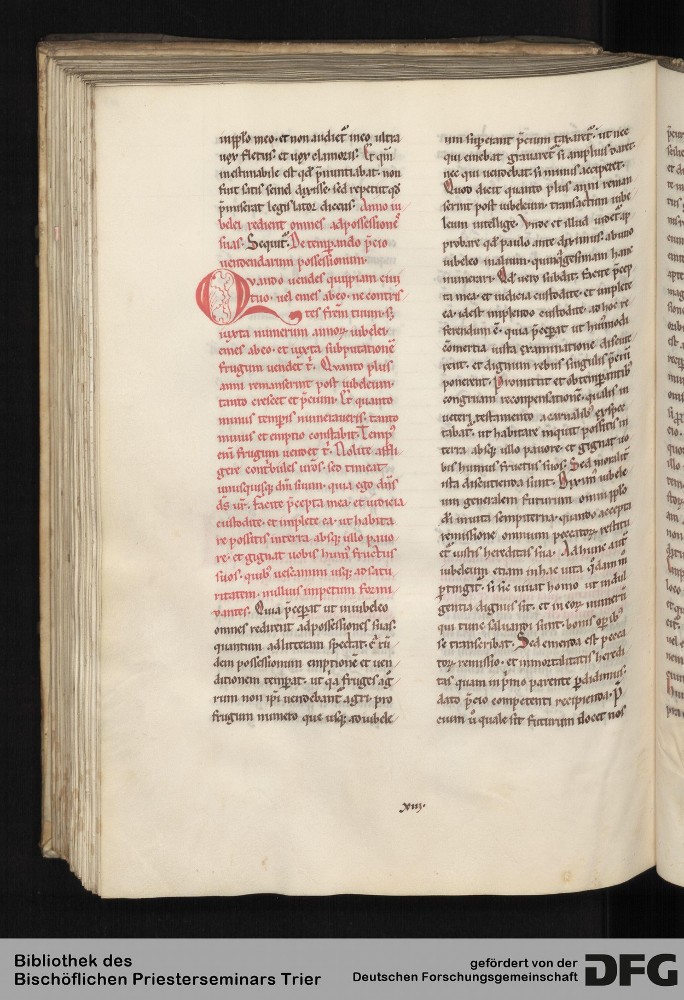 in populo meo. et non audiet̃ in eo ultra
uox fletus. et uox clamoris. Et qm̃
inestimabile est qd̃ p̃nuntiabat. non
fuit satis semel dixisse. sed repetit qd̃
p̃miserat legislator dicens. Anno iu
belei redient omnes ad possessiones
suas. Sequit̃. De temperando p̃cio
uendendarum possessionum.
Quando uendes quippiam ciui
tuo. uel emes ab eo. ne contris
tes frem̃ tuum. s;
iuxta numerum annoꝝ iubelei
emes ab eo. et iuxta subputationẽ
frugum uendet t̾. Quanto plus
anni remanserint post iubeleum.
tanto crescet et p̃cium. Et quanto
minus temp̃is numeraueris. tanto
minus et emptio constabit. Temp᷒
eni᷒ frugum uendet t̾. Nolite affli
gere contribules uros̃. sed timeat
unusquisq; dm̃ suum. quia ego dns̃
ds̃ ur̃. Facite p̃cepta mea. et iudicia
custodite. et implete ea. ut habita
re possitis in terra absq; ullo pauo
re. et gignat uobis hum᷒ fructus
suos. quib᷒ uescamini usq; ad satu
ritatem. nullius impetum formi
dantes. Quia p̃ceperat ut in iubeleo
omnes redirent ad possessiones suas.
quantum ad litteram spectat. eaꝝ
dem possessionum emptionẽ et uen
ditionem temperat. ut qa̾ fruges ag̃
rum non ipi̾ uendebant̃ agri. pro
frugum numero que usq; ad iubele
um superant p̃cium taxaret̃. ut nec
qui emebat grauaret̃ si amplius daret.
nec qui uendebat. si minus acciperet.
Quod dicit quanto plus anni reman
serint post iubeleum. transactum iube
leum intellige. Vnde et illud uidet̃ ap
probare qd̃ paulo ante diximus. ab uno
iubeleo in alium. quinquagesimam hanc
numerari. Qd̃ uero subdit. Facite p̃cep
ta mea. et iudicia custodite. et implete
ea. idest implendo custodite. ad hoc re
ferendum ẽ. quia p̃ceperat ut huiusmodi
com̃ertia iusta examinatione discute
rent. et dignum rebus singulis p̃cium
ponerent. Promittit et obtemperantib᷒
congruam recompensationẽ. qualis in
ueteri testamento a carnalib᷒ exspec
tabat̃. ut habitare inquit possitis in
terra absq; ullo pauore. et gignat uo
bis humus fructus suos. Sed moralit̃
ista discutienda sunt. Diximus iubele
um generalem futurum omni populo
di̾ in uita sempiterna. quando accepta
remissione omnium peccatoꝝ. restitu
et̃ iustis hereditas sua. Adhunc aut̃
iubeleum etiam in hac uita quidam mi
pertingit̃. si sic uiuat homo ut indul
gentia dignus sit. et in eoꝝ numerũ
qui tunc saluandi sunt. bonis opib᷒
se transcribat. Sed emenda est pecca
toꝝ remissio. et inmortalitatis heredi
tas quam in p̃mo parente perdidimus.
dato p̃cio competenti recipienda. P̃
cium u̾ quale sit futurum docet nos
xiij.
Bibliothek des
Bischöflichen Priesterseminars Trier
gefördert von der
Deutschen Forschungsgemeinschaft
DFG